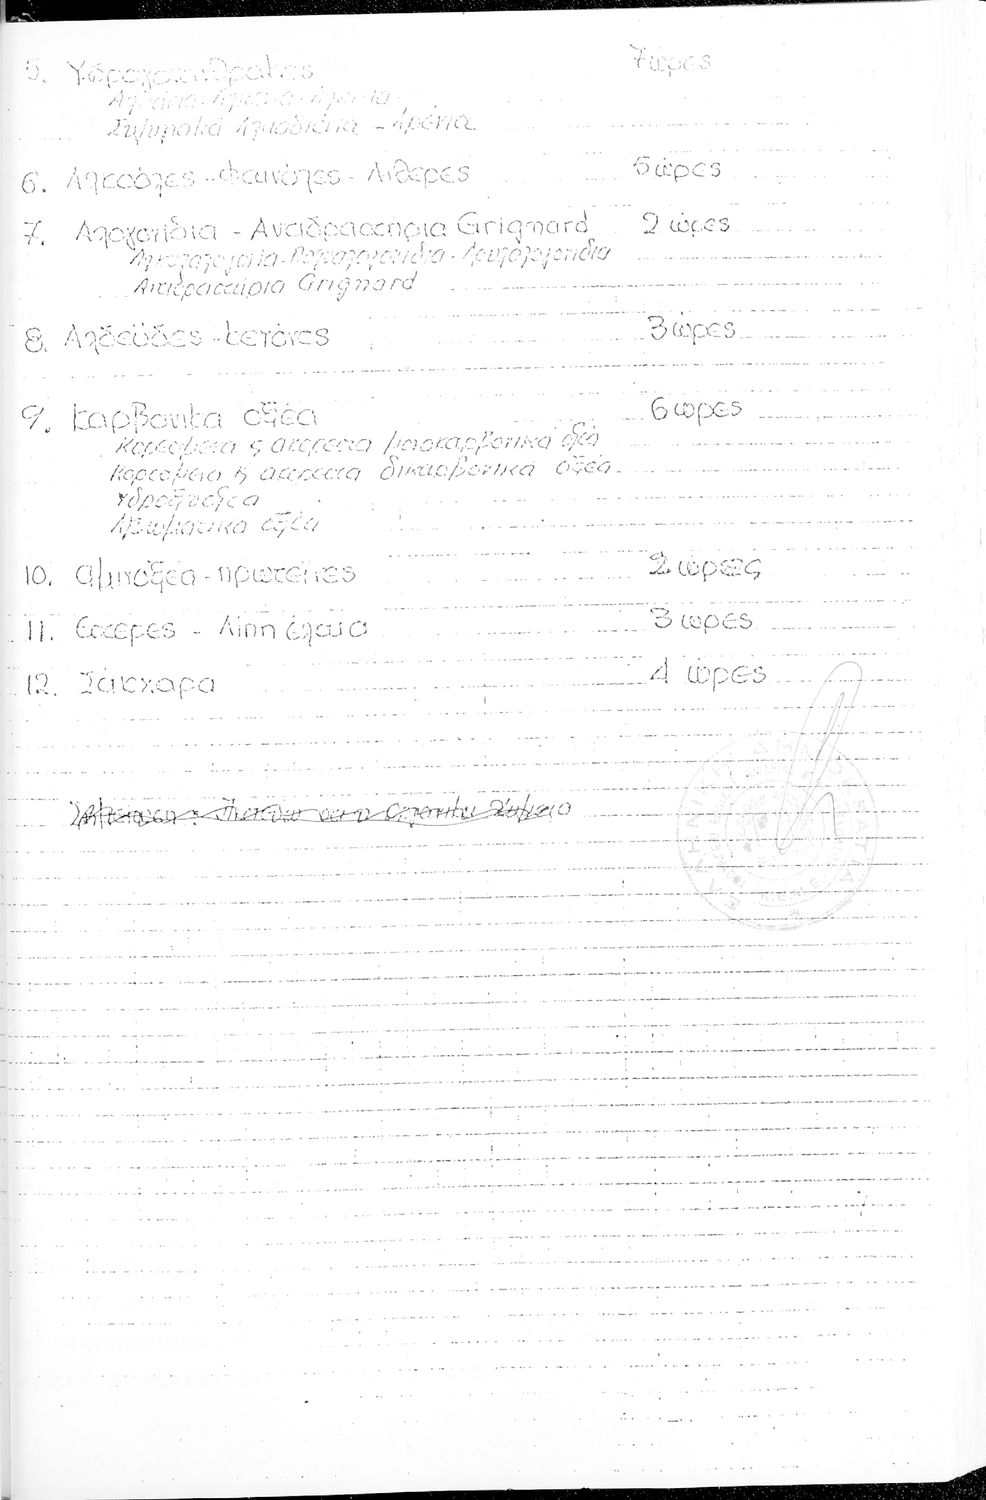 5. Υδρογονάνθρακες 7 ώρες
Αλκάνια - Αλκένια - Αλκίνια
Συζυγιακά Αλκαδιένια - Αρένια
6. Αλκοόλες - Φαινόλες - Αιθέρες 5 ώρες
7. Αλογονίδια - Αντιδραστήρια Grignard 2 ώρες
Αντιδραστήρια Grignard
8. Αλδεΰδες - κετόνες 3 ώρες
9. Καρβονικα οξέα 6 ώρες
Κορεσμένα ή ακόρεστα μονοκαρβονικά οξέα
Κορεσμένα ή ακόρεστα δικαρβονικά οξέα
Υδροξυοξέα
Αρωματικα οξέα
10. αμινοξέα - πρωτεΐνες 2 ώρες
11. Εστερες - Λίπη έλαια 3 ώρες
12. Σάκχαρα 4 ώρες